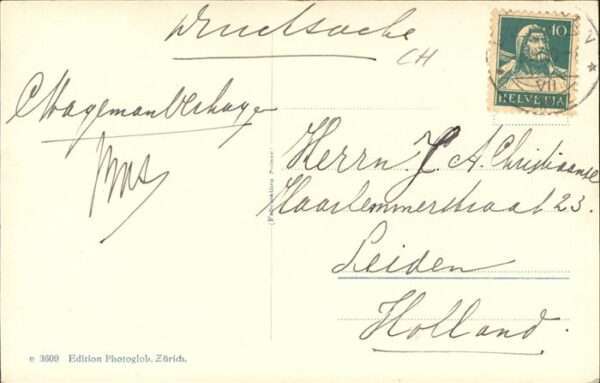 Drucksache
CH
10
HELVETIA
VII
C Wageman Verhage
Herrn. J. A. Christiaanse
Haarlemmerstraat 23.
Leiden
Holland.
e 3609 Edition Photoglob. Zürich.